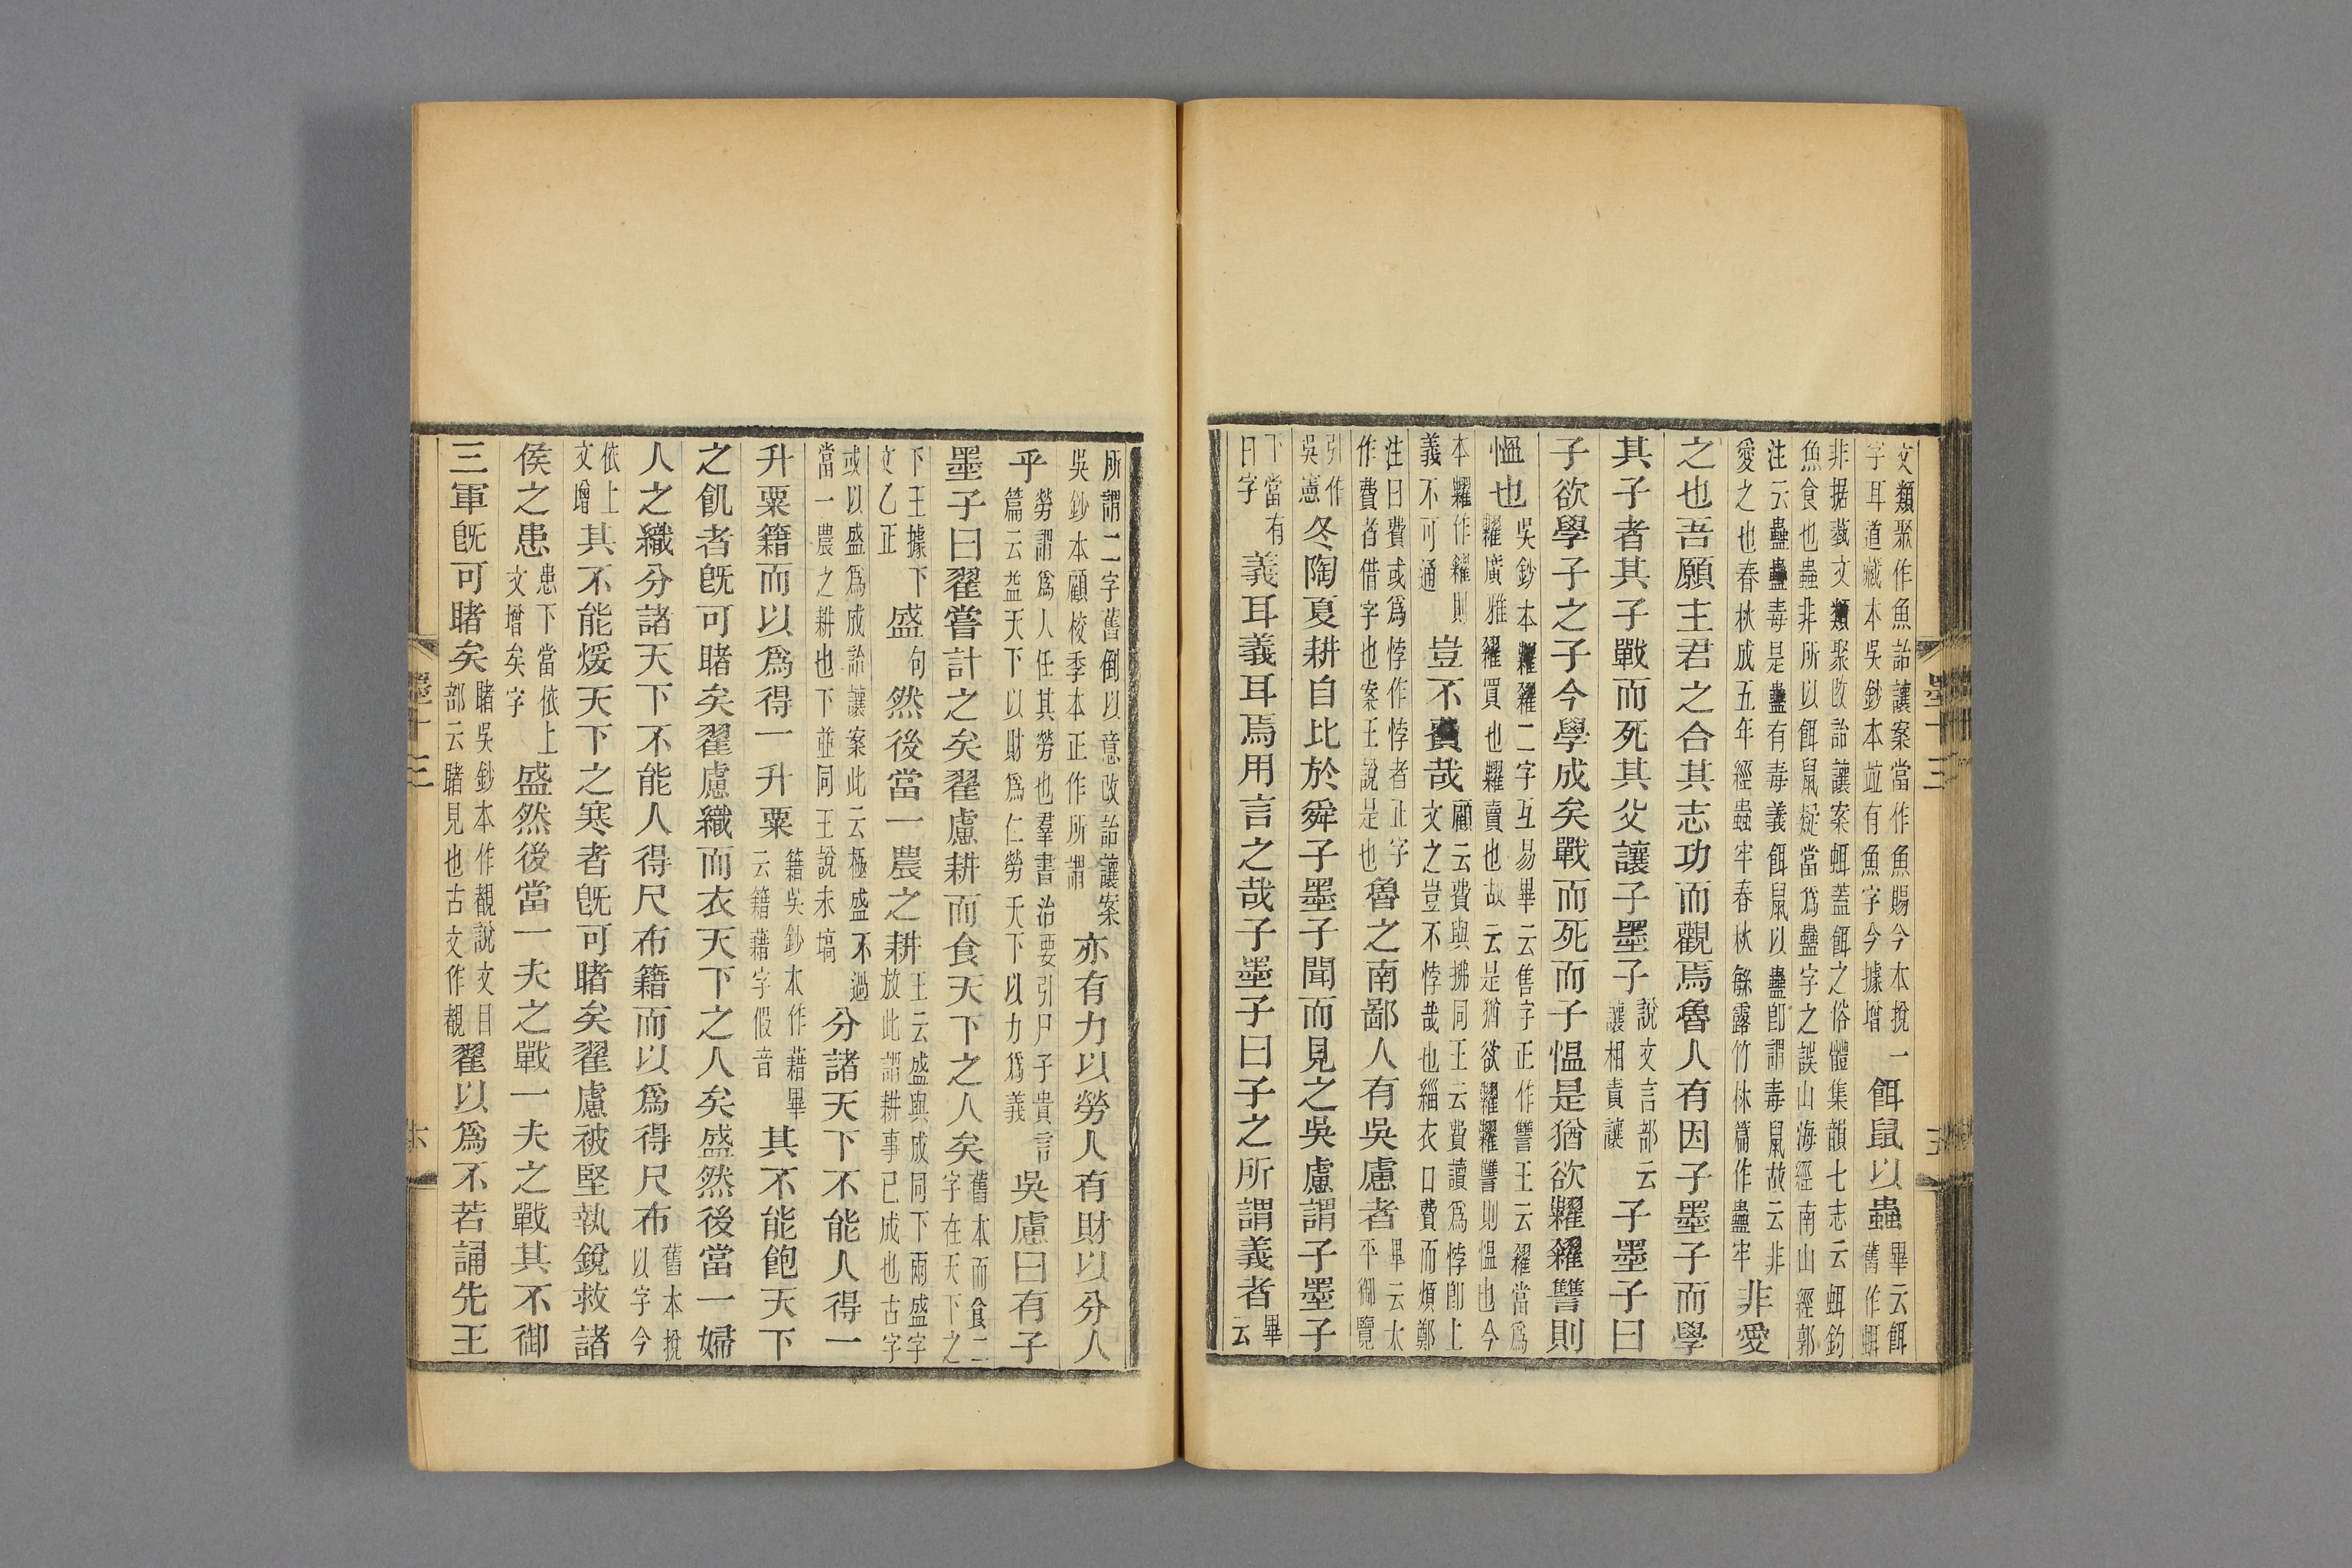 文類聚作魚詒讓案當作魚賜今本挩一字耳道藏本吳鈔本竝有魚字今據增餌鼠以蟲畢云餌舊作𧊧
非据蓺文類聚改詒讓案𧊧蓋餌之俗體集韻七志云𧊧釣魚食也蟲非所以餌鼠疑當爲蠱字之誤山海經南山經郭
注云蠱蠱毒是蠱有毒義餌鼠以蠱卽謂毒鼠故云非愛之也春秋成五年經蟲牢春秋緐露竹林篇作蠱牢非愛
之也吾願主君之合其志功而觀焉魯人有因子墨子而學
其子者其子戰而死其父讓子墨子說文言部云讓相責讓子墨子曰
子欲學子之子今學成矣戰而死而子慍是猶欲糶糴讐則
慍也吳鈔本糶糴二字互易畢云售字正作讐王云糴當爲糶廣雅糴買也糶賣也故云是猶欲糶糶讐則慍也今
本糶作糴則義不可通豈不費哉顧云費與拂同王云費讀爲悖卽上文之豈不悖哉也緇衣口費而煩鄭
注曰費或爲悖作悖者正字作費者借字也案王說是也魯之南鄙人有吳慮者畢云太平御覽
引作吳憲冬陶夏耕自比於舜子墨子聞而見之吳慮謂子墨子
下當有曰字義耳義耳焉用言之哉子墨子曰子之所謂義者畢云
所謂二字舊倒以意改詒讓案吳鈔本顧校季本正作所謂亦有力以勞人有財以分人
乎勞謂爲人任其勞也羣書治要引尸子貴言篇云益天下以財爲仁勞天下以力爲義吳慮曰有子
墨子曰翟嘗計之矣翟慮耕而食天下之人矣舊本而食二字在天下之
下王據下文乙正盛句然後當一農之耕王云盛與成同下兩盛字放此謂耕事已成也古字
或以盛爲成詒讓案此云極盛不過當一農之耕也下並同王說未塙分諸天下不能人得一
升粟籍而以爲得一升粟籍吳鈔本作藉畢云籍藉字假音其不能飽天下
之飢者旣可睹矣翟慮織而衣天下之人矣盛然後當一婦
人之織分諸天下不能人得尺布籍而以爲得尺布舊本挩以字今
依上文增其不能煖天下之寒者旣可睹矣翟慮被堅執銳救諸
侯之患患下當依上文增矣字盛然後當一夫之戰一夫之戰其不御
三軍旣可睹矣睹吳鈔本作覩說文目部云睹見也古文作覩翟以爲不若誦先王
墨十三